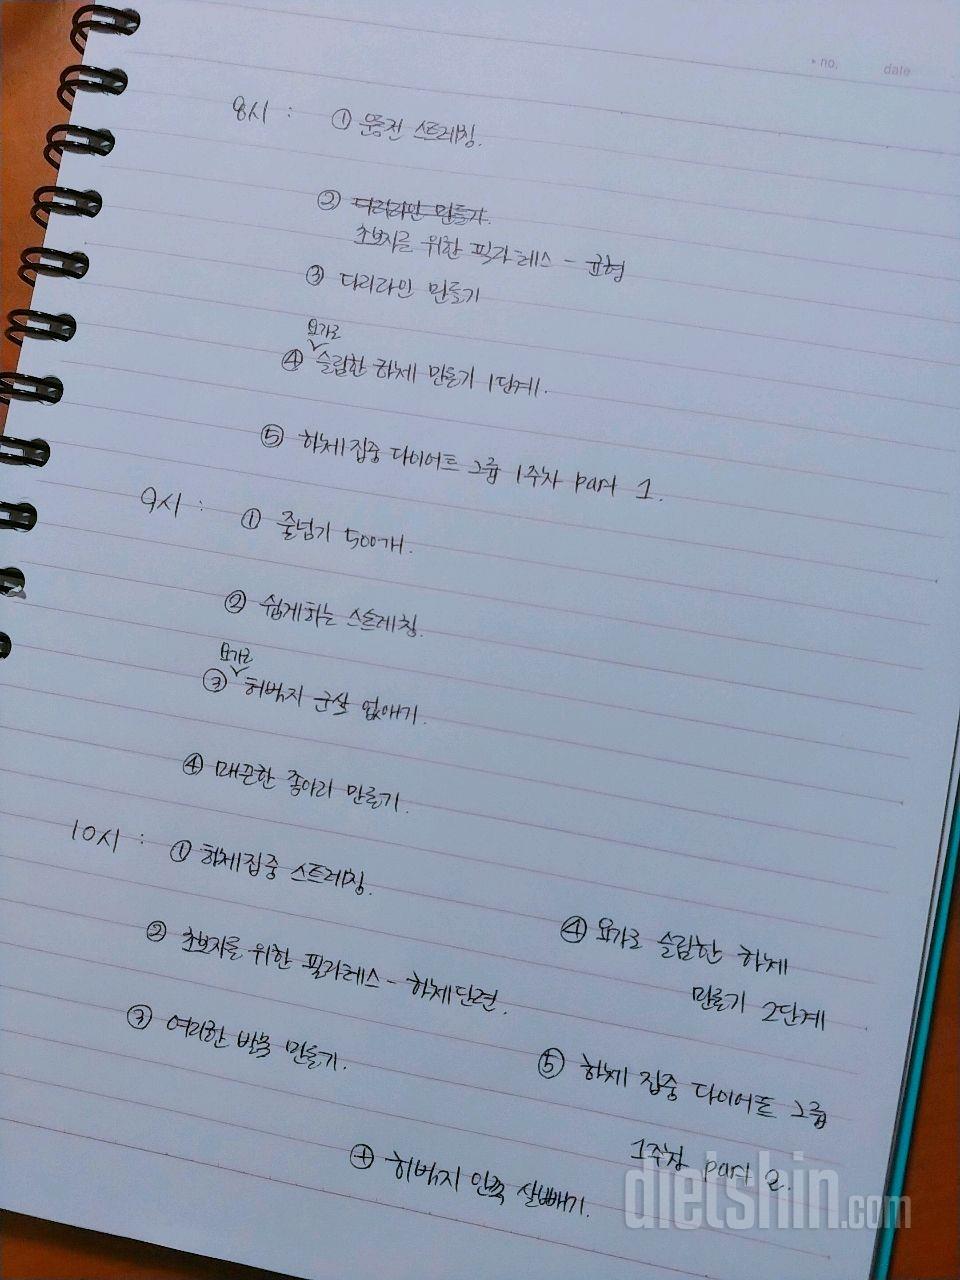 no. date
8시 : ① 운동전 스트레칭.
② 다리라인 만들기.
초보자를 위한 필라테스 - 균형
③ 다리라인 만들기
요가로
④ 슬림한 하체 만들기 1단계.
⑤ 하체집중 다이어트 그룹 1주차 part 1.
9시 : ① 줄넘기 500개.
② 쉽게하는 스트레칭.
요가로
③ 허벅지 군살 없애기.
④ 매끈한 종아리 만들기.
10시 : ① 하체집중 스트레칭.
② 초보자를 위한 필라테스 - 하체단련.
③ 여리한 발목 만들기.
④ 요가로 슬림한 하체
만들기 2단계
⑤ 하체 집중 다이어트 그룹
1주차 part 2.
+ 허벅지 안쪽 살빼기.
dietshin.com